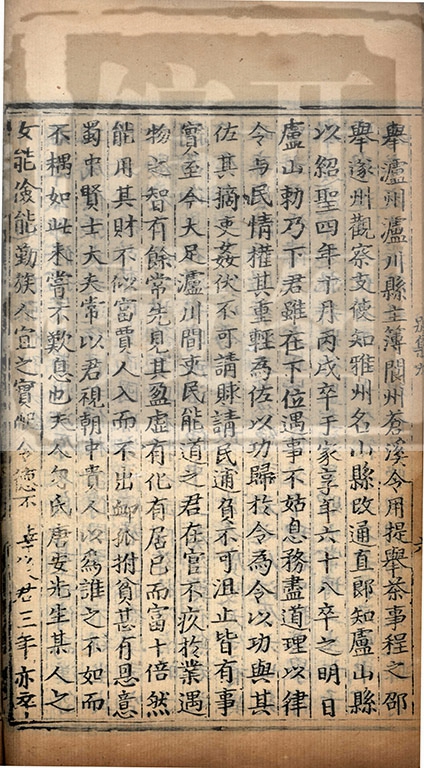 舉瀘州瀘川縣主簿閬州蒼溪令用提舉茶事程之邵
舉遂州觀察支使知雅州名山縣改通直郎知盧山縣
以紹聖四年十月丙戌卒于家享年六十八卒之明日
盧山勅乃下君雖在下位遇事不姑息務盡道理以律
令與民情權其重輕為佐以功歸於令為令以功與其
佐其擿吏姦伏不可請賕請民逋負不可沮止皆有事
實至今大足瀘川間吏民能道之君在官不疚於業遇
物之智有餘常先見其盈虛有化有居已而富十倍然
能用其財不似富賈人入而不出衈孤拊貧甚有恩意
蜀中賢士大夫常以君視朝中貴人以為誰之不如而
不遇如此未嘗不歎息也夫人忽氏唐安先生某人之
女能儉能勤族人宜之實 令德不幸以君三年亦卒
別集九
六